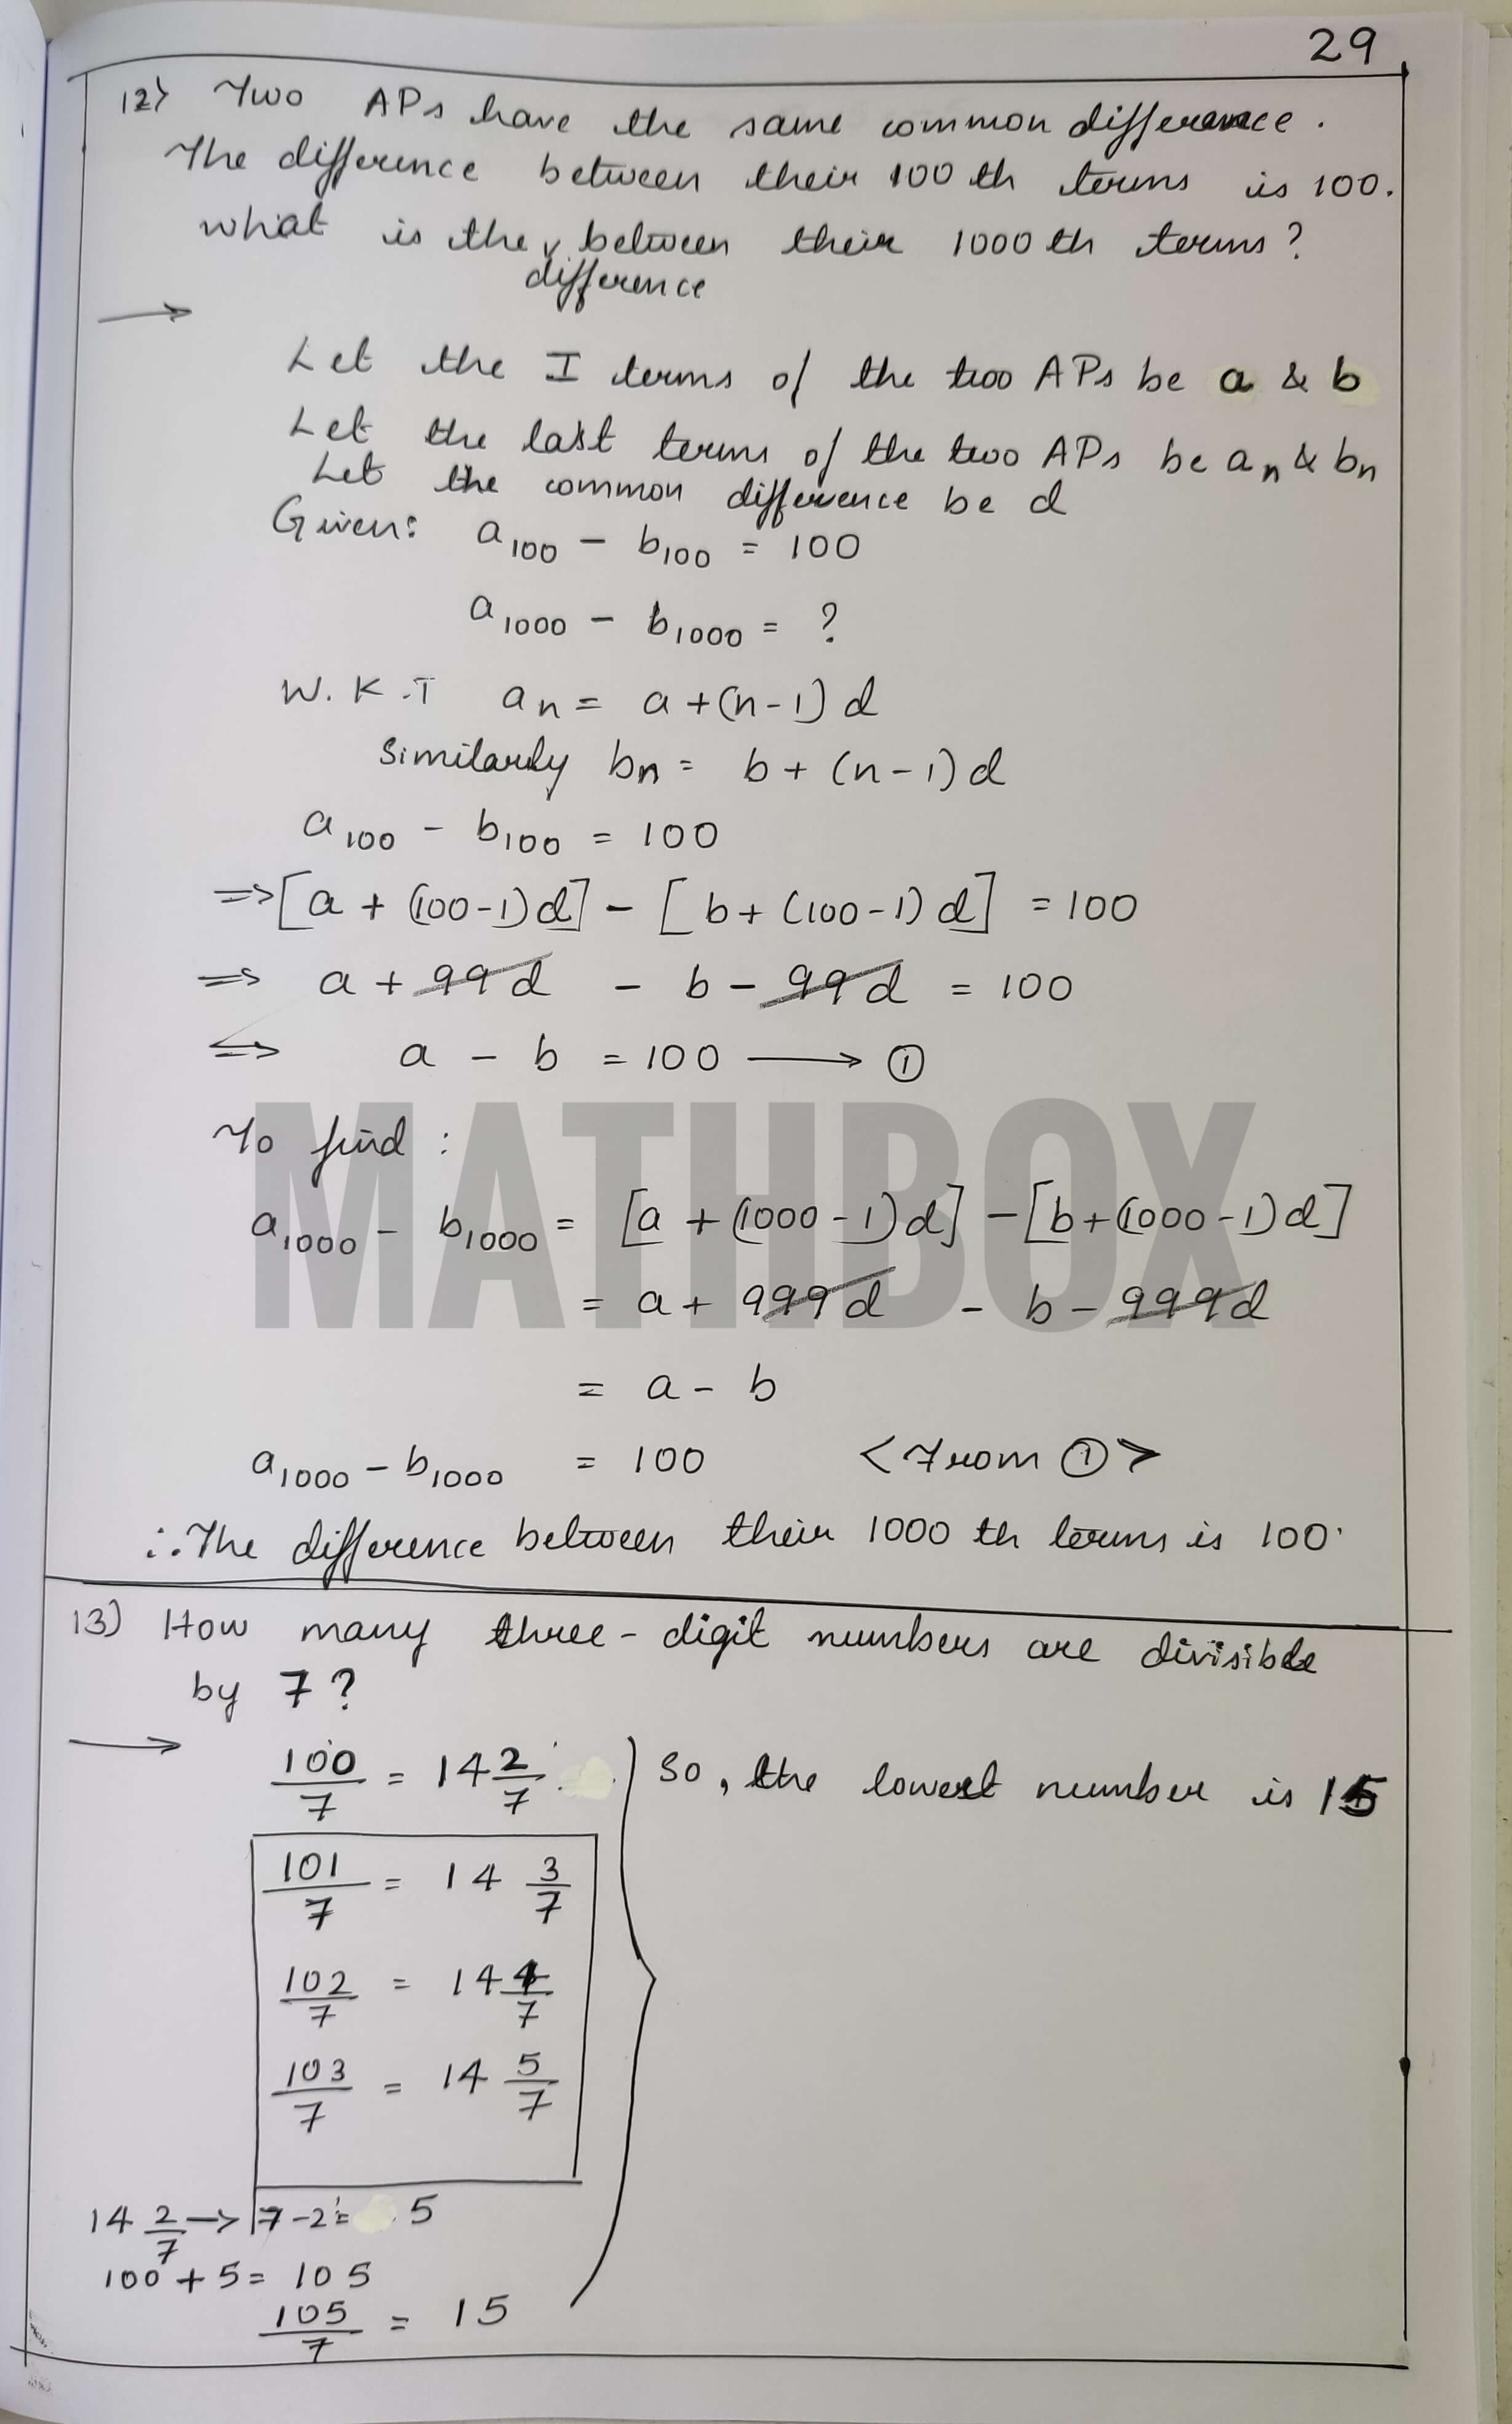 29
12) Two APs have the same common difference.
The difference between their 100 th terms is 100.
What is the between their 1000 th terms?
difference
Let the I terms of the two APs be a & b
Let the last terms of the two APs be aₙ & bₙ
Let the common difference be d
Given: a₁₀₀ - b₁₀₀ = 100
a₁₀₀₀ - b₁₀₀₀ = ?
W.K.T aₙ = a+(n-1)d
Similarly bₙ = b+(n-1)d
a₁₀₀ - b₁₀₀ = 100
=> [a + (100-1)d] - [b+(100-1)d] = 100
=> a + 99d - b - 99d = 100
=> a - b = 100 ⟶ ①
To find :
a₁₀₀₀ - b₁₀₀₀ = [a+(1000-1)d] - [b+(1000-1)d]
= a + 999d - b - 999d
MATHBOX
= a - b
a₁₀₀₀ - b₁₀₀₀ = 100 <From ①>
∴ The difference between their 1000 th terms is 100.
13) How many three-digit numbers are divisible
by 7?
100/7 = 14 2/7 So, the lowest number is 15
101/7 = 14 3/7
102/7 = 14 4/7
103/7 = 14 5/7
14 2/7 → 7-2 = 5
100 + 5 = 105
105/7 = 15